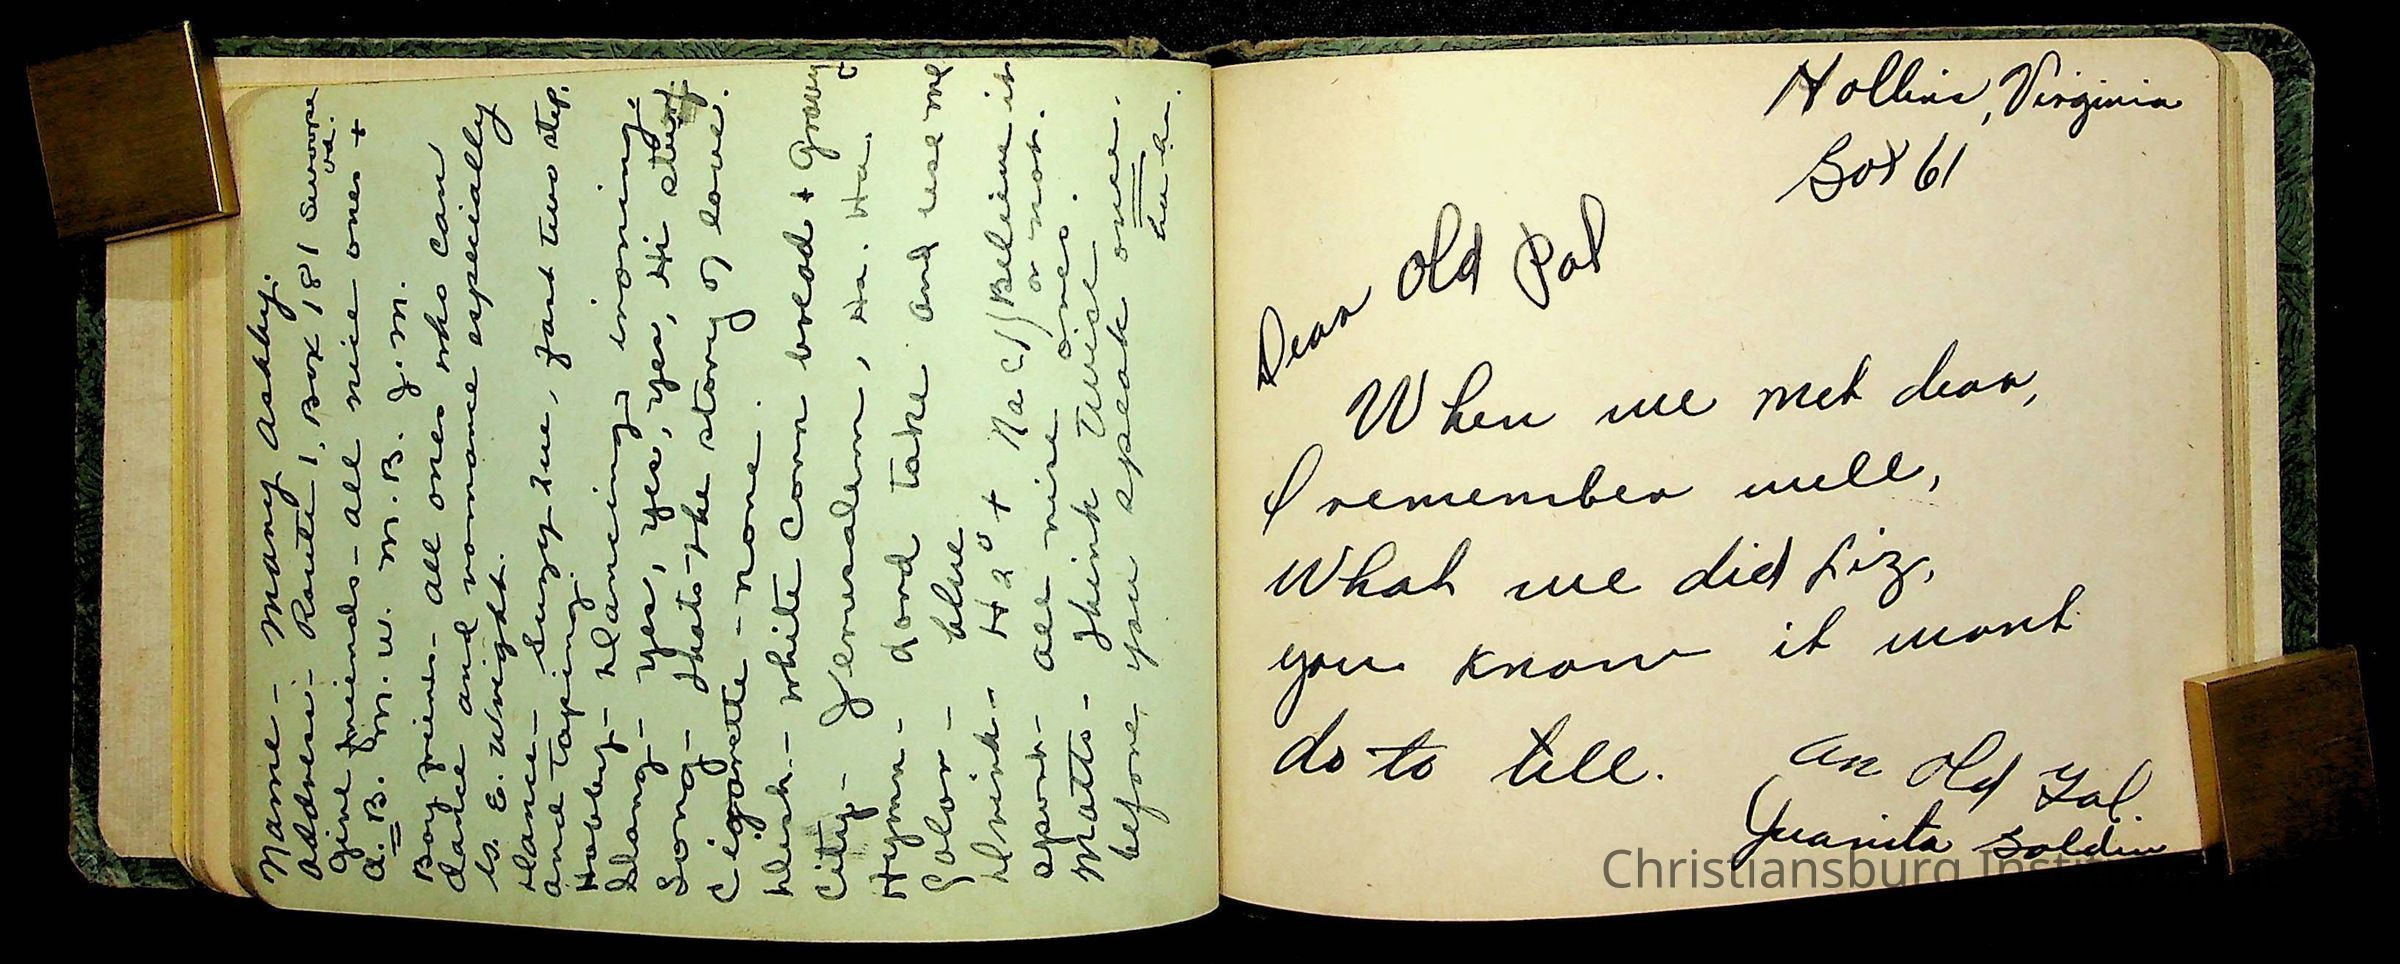 Name - Mary Ashby.
Address:- Route 1. Box 181 Swoope Va.
Girl friends - all nice ones +
A. B. M. W. M. B. J. M.
Boy friens - All ones who can
dance and romance especially
L. E. Wright.
Dance - Suzy Sue, fast two step,
and taping.
Hobby - Dancing, ironing.
Slang - yes, yes, yes, Hi stuff
Song - Thats the story of love.
Cigarette - none.
Dish - white corn bread + Gravy
City - Jerusalem, Ha. Ha.
Hymn - Lord take and use me
Color - blue
Drink - H2O + NaCl Believe it
or not.
Sport - All nice ones.
Motto - Think Twice
before you speak once.
ha ha.
Hollins, Virginia
Box 61
Dear Old Pal
When we met dear,
I remember well,
What we did Liz,
you know it wont
do to tell.
An Old Gal
Juanita Goldin
Christiansburg Instit